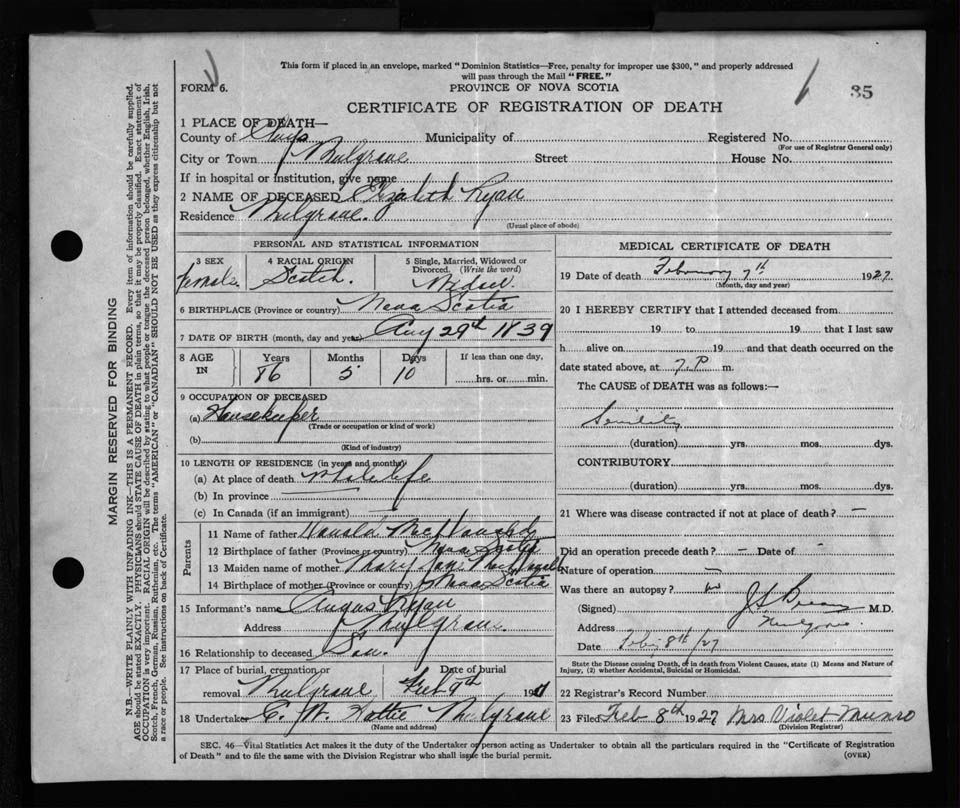 This form if placed in an envelope, marked “ Dominion Statistics—Free, penalty for improper use $300, ” and properly addressed
will pass through the Mail “ FREE. ”
FORM 6.
PROVINCE OF NOVA SCOTIA
35
CERTIFICATE OF REGISTRATION OF DEATH
1 PLACE OF DEATH—
County of Guys Municipality of Registered No.
(For use of Registrar General only)
City or Town Mulgrave Street House No.
If in hospital or institution, give name
2 NAME OF DECEASED Elizabeth Ryan
Residence Mulgrave.
(Usual place of abode)
PERSONAL AND STATISTICAL INFORMATION
3 SEX
female
4 RACIAL ORIGIN
Scotch.
5 Single, Married, Widowed or
Divorced. (Write the word)
Widow.
6 BIRTHPLACE (Province or country) Nova Scotia
7 DATE OF BIRTH (month, day and year) Aug 29th 1839
8 AGE IN
Years Months Days If less than one day,
5 10 hrs. or min.
9 OCCUPATION OF DECEASED
(a) Housekeeper
(Trade or occupation or kind of work)
(b)
(Kind of industry)
10 LENGTH OF RESIDENCE (in years and months)
(a) At place of death whole life
(b) In province
(c) In Canada (if an immigrant)
Parents
11 Name of father Donald
12 Birthplace of father (Province or country) Nova Scotia
13 Maiden name of mother Mary Jane
14 Birthplace of mother (Province or country) Nova Scotia
15 Informant's name Angus Ryan
Address Mulgrave.
16 Relationship to deceased Son.
17 Place of burial, cremation or
removal Mulgrave
Date of burial
Feb 9th 19
18 Undertaker Mulgrave
(Name and address)
MEDICAL CERTIFICATE OF DEATH
19 Date of death February 7th 1927.
(Month, day and year)
20 I HEREBY CERTIFY that I attended deceased from
19 to 19 that I last saw
h alive on 19 and that death occurred on the
date stated above, at 7 P. m.
The CAUSE of DEATH was as follows:—
Senility
(duration) yrs. mos. dys.
CONTRIBUTORY
(duration) yrs. mos. dys.
21 Where was disease contracted if not at place of death? —
Did an operation precede death? — Date of
Nature of operation —
Was there an autopsy? no
(Signed) M.D.
Address Mulgrave.
Date Feby 8th/27
State the Disease causing Death, or in death from Violent Causes, state (1) Means and Nature of
Injury, (2) whether Accidental, Suicidal or Homicidal.
22 Registrar's Record Number
23 Filed Feb 8th 1927 Mrs Violet Munro
(Division Registrar)
SEC. 46—Vital Statistics Act makes it the duty of the Undertaker or person acting as Undertaker to obtain all the particulars required in the “Certificate of Registration
of Death” and to file the same with the Division Registrar who shall issue the burial permit.
(OVER)
MARGIN RESERVED FOR BINDING
N.B.—WRITE PLAINLY WITH UNFADING INK—THIS IS A PERMANENT RECORD. Every item of information should be carefully supplied.
AGE should be stated EXACTLY. PHYSICIANS should STATE CAUSE OF DEATH in plain terms, so that it may be properly classified. Exact statement of
OCCUPATION is very important. RACIAL ORIGIN will be described by stating to what people or tongue the deceased person belonged, whether English, Irish,
Scotch, French, German, Russian, Ruthenian, etc. The terms “AMERICAN” or “CANADIAN” SHOULD NOT BE USED as they express citizenship but not
a race or people. See instructions on back of Certificate.